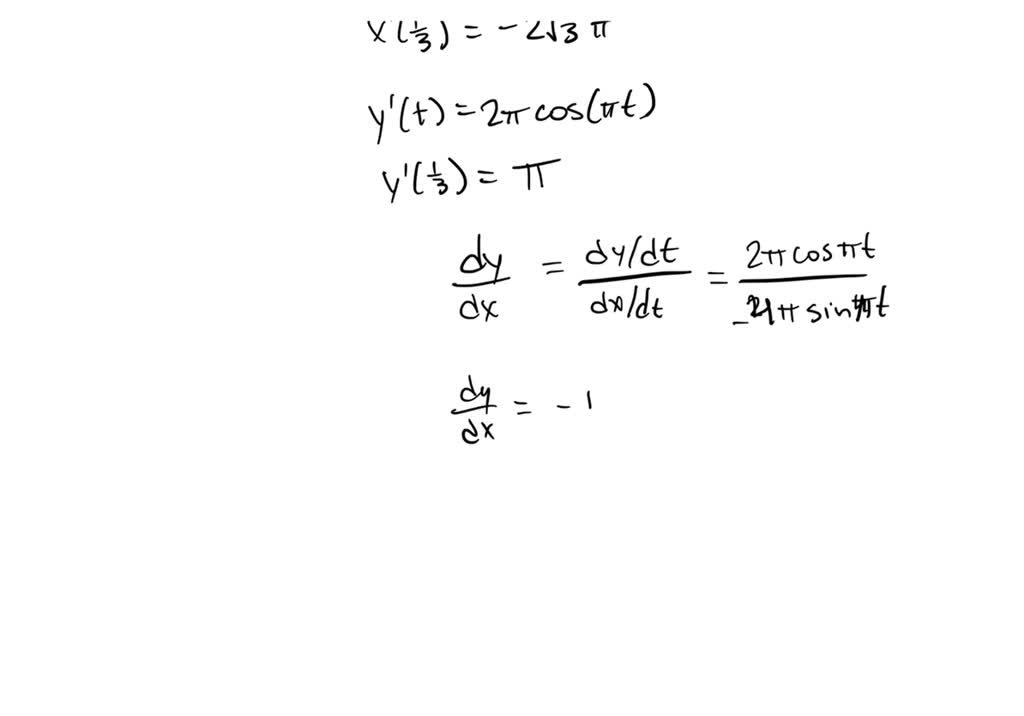 x(1/3) = -2√3 π
y'(t) = 2π cos(πt)
y'(1/3) = π
dy/dx = (dy/dt)/(dx/dt) = (2π cos πt)/(-4π sin πt)
dy/dx = - 1